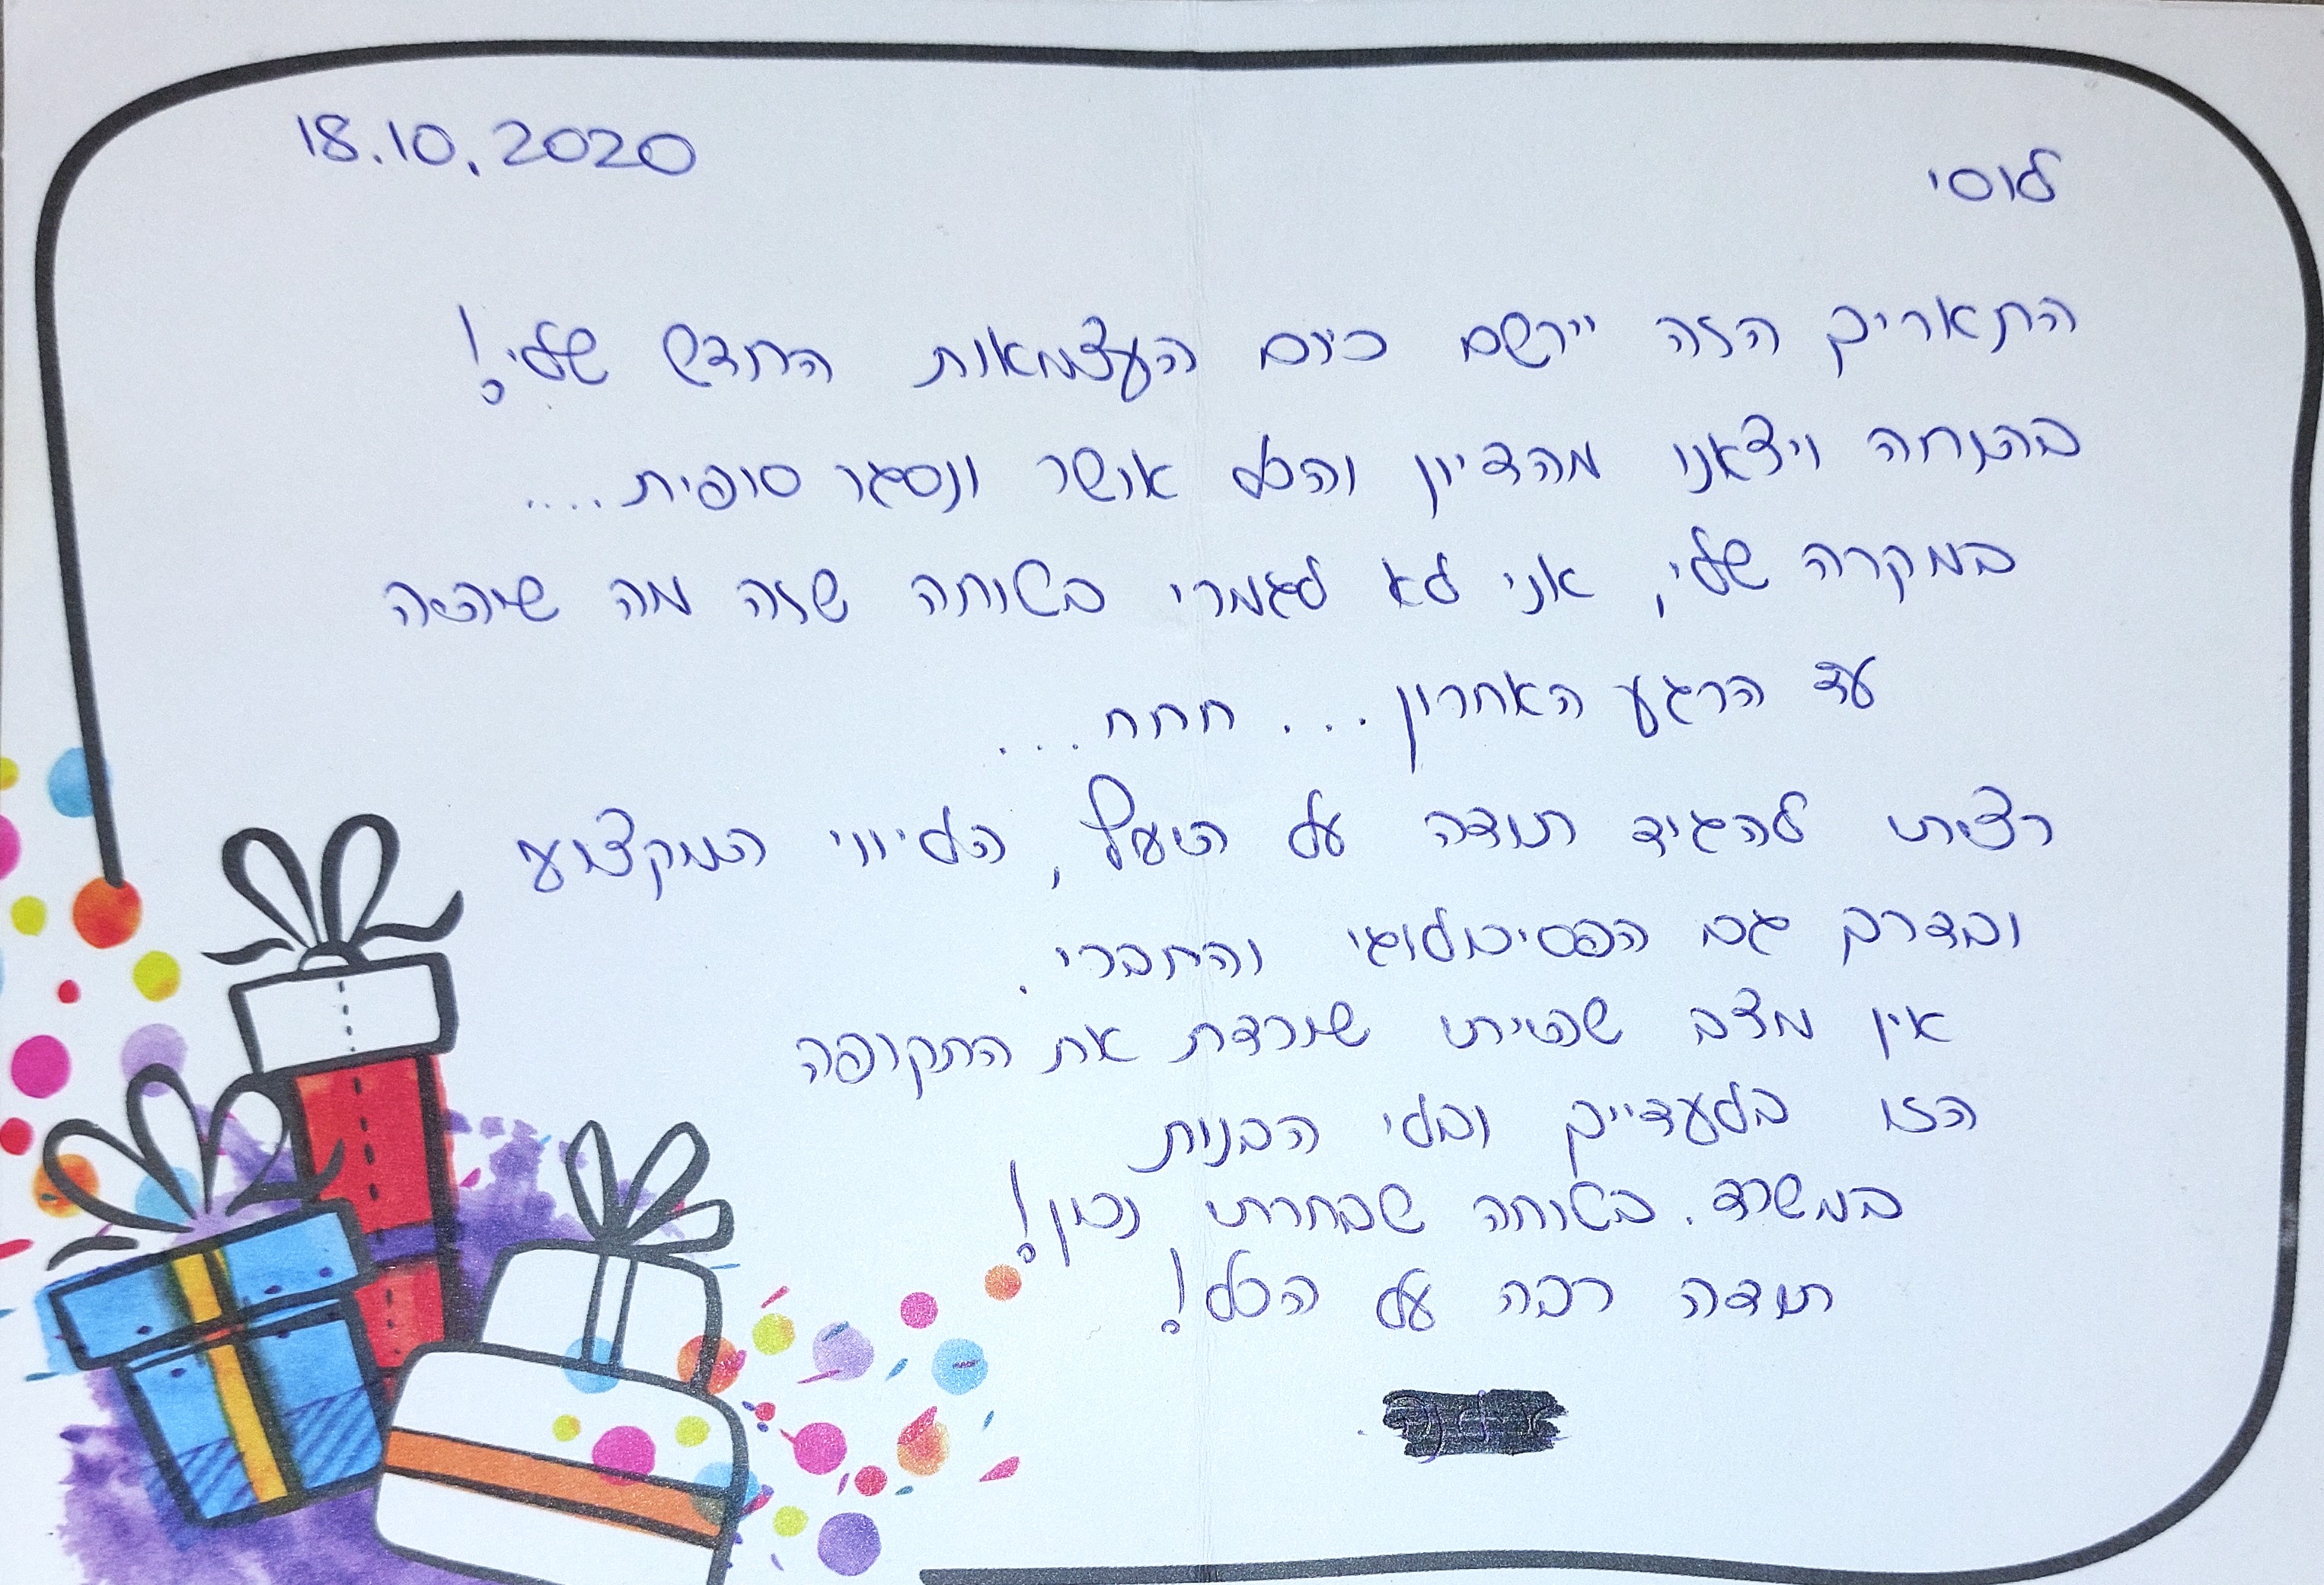 18.10.2020
לוסי
התאריך הזה יירשם כיום העצמאות החדש שלי!
בהנחה ויצאנו מהדיון והכל אושר ונסגר סופית....
במקרה שלי, אני לא לגמרי בטוחה שזה מה שיהיה
עד הרגע האחרון... חחח...
רציתי להגיד תודה על הליווי המקצועי
ובדרך גם הפסיכולוגי והחברי.
אין מצב שהייתי שורדת את התקופה
הזו בלעדייך ובלי הבנות
במשרד. בטוחה שבחרתי נכון!
תודה רבה על הכל!